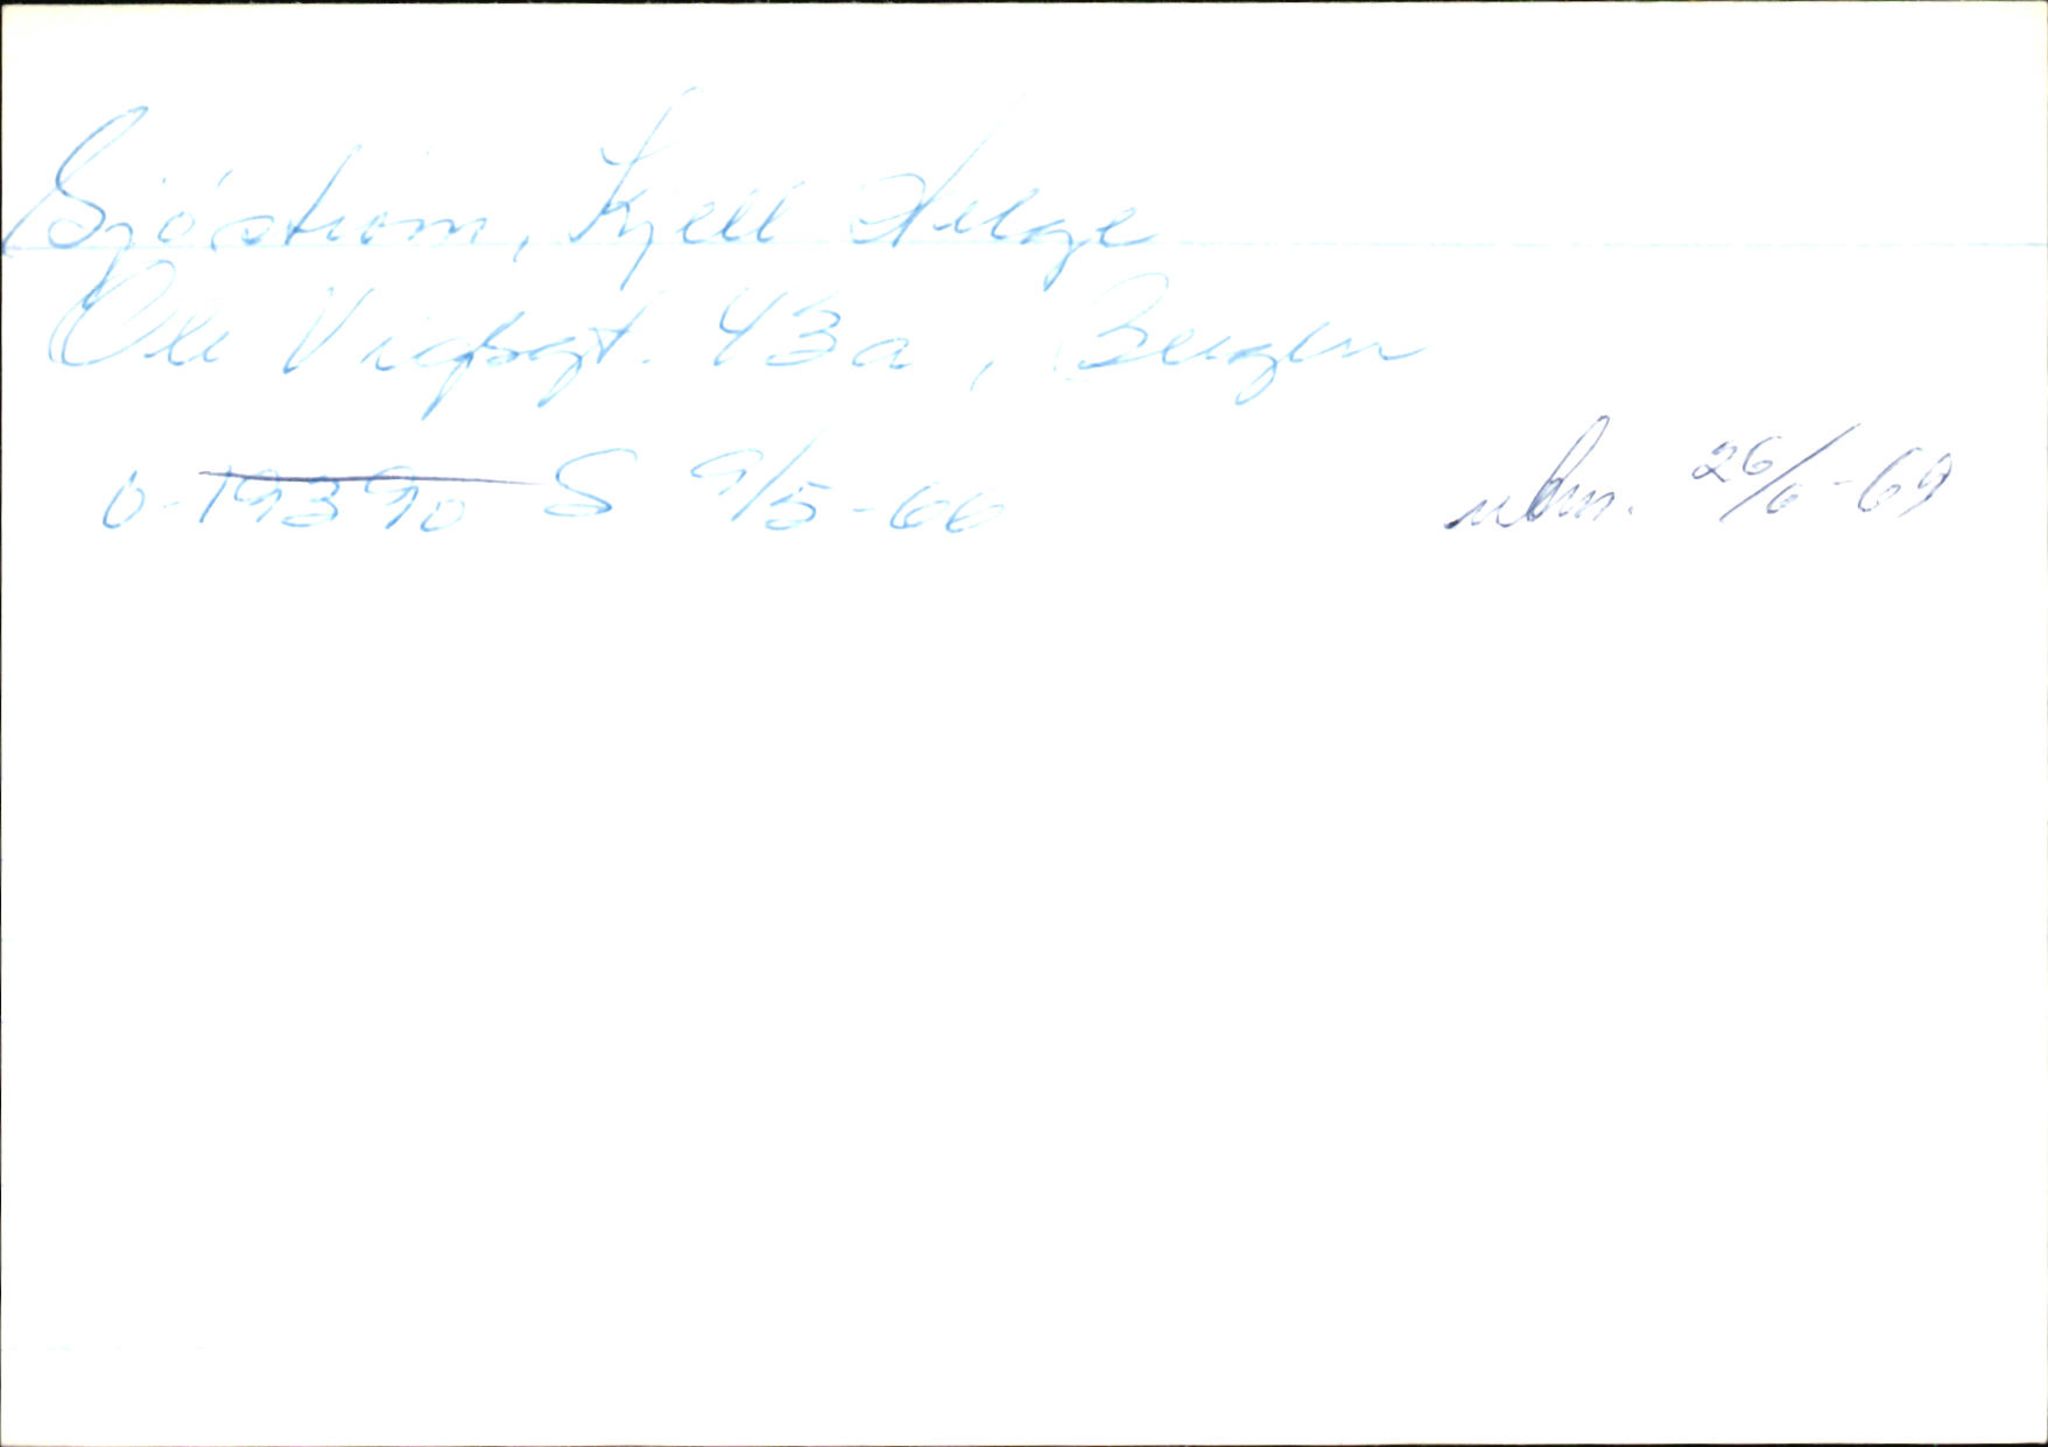 Sjöstrøm, Kjell Helge
Ole Vigsgt. 43a, Bergen
O-19390 S 9/5-66 ubm. 26/6-69